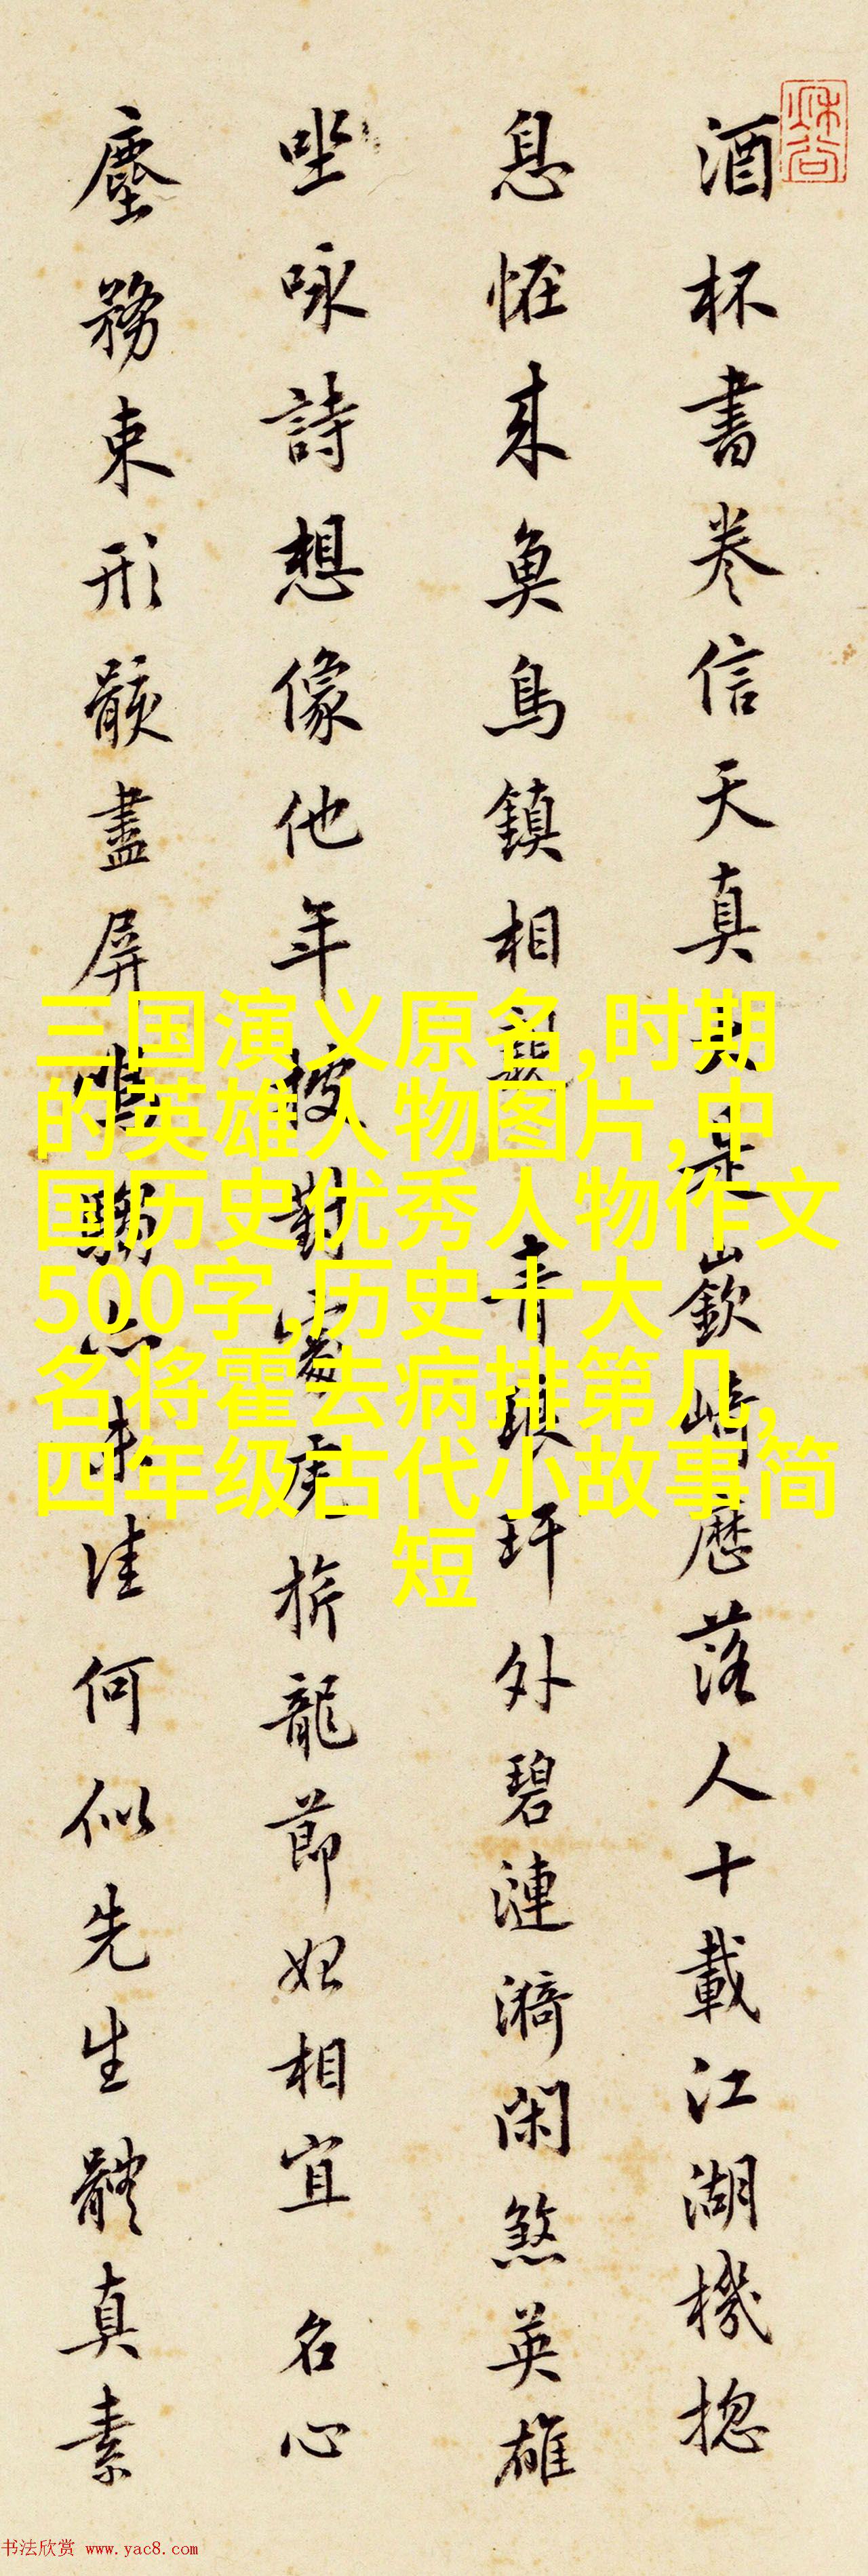 酒杯書卷信天真是嶔崎歷落人十載江湖機揔
息恠来魚鳥鎮相親青琅玕外碧漣漪閑煞英雄
坐咏詩想像他年披對處虎旂龍節始相宜 名心
塵務束形骸盡屏未佳何似先生體真素
三国演义原名,时期
的英雄人物图片,中
国历史优秀人物作文
500字,历史十大
名将霍去病排第几,
四年级古代小故事简
短
书法欣赏 www.yac8.com